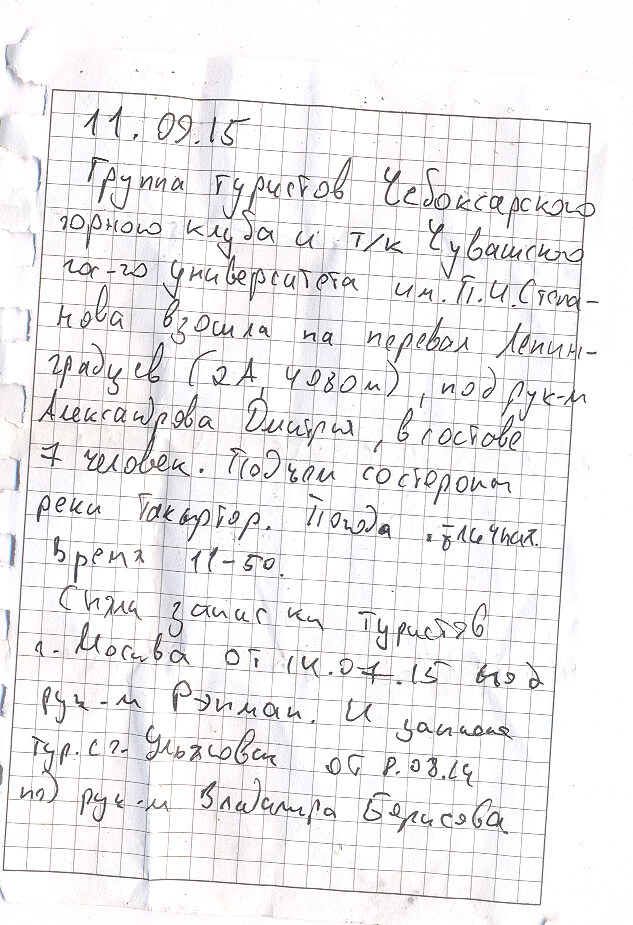 11.09.15
Группа туристов Чебоксарского
горного клуба и т/к Чувашского
гос-го университета им. П.И.Степа-
нова взошла на перевал Ленин-
градцев (2А, 4030м), под рук-м
Александрова Дмитрия, в составе
7 человек. Подъем со стороны
реки Такыртор. Погода отличная.
Время 11-50.
Сняли записки туристов
г. Москва от 14.07.15 под
рук-м Рэпман. И записка
тур. с г. Ульяновск от 8.08.14
под рук-м Владимира Борисова